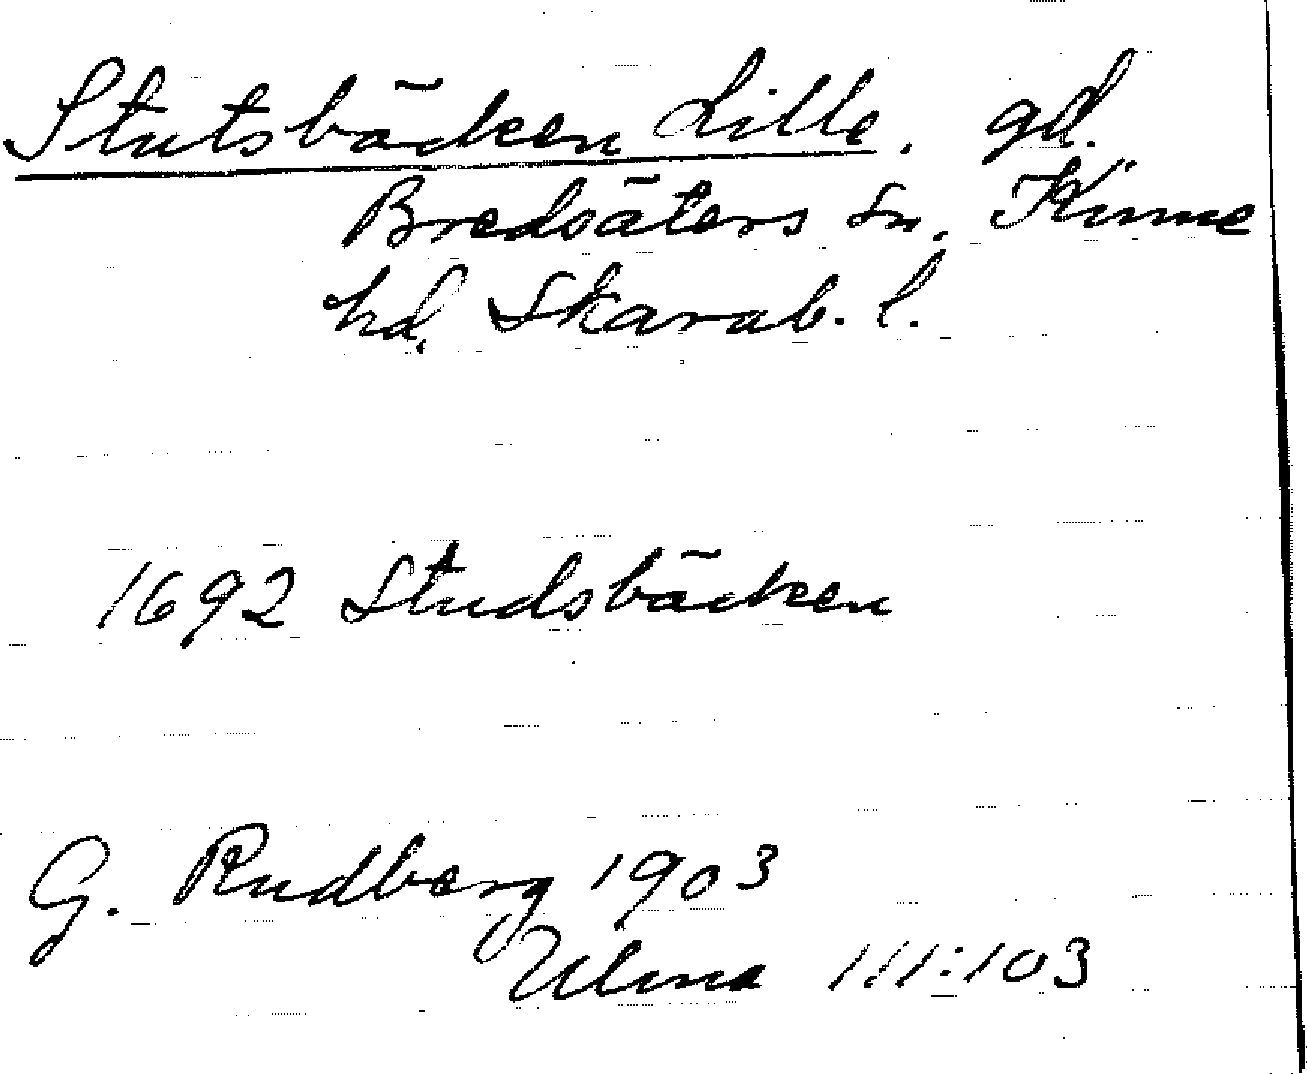 Stutsbäcken Lille. gd.
Bredsäters sn. Kinne
hd. Skarab. l.
1692 Studsbäcken
G. Rudberg 1903
Ulma 111:103